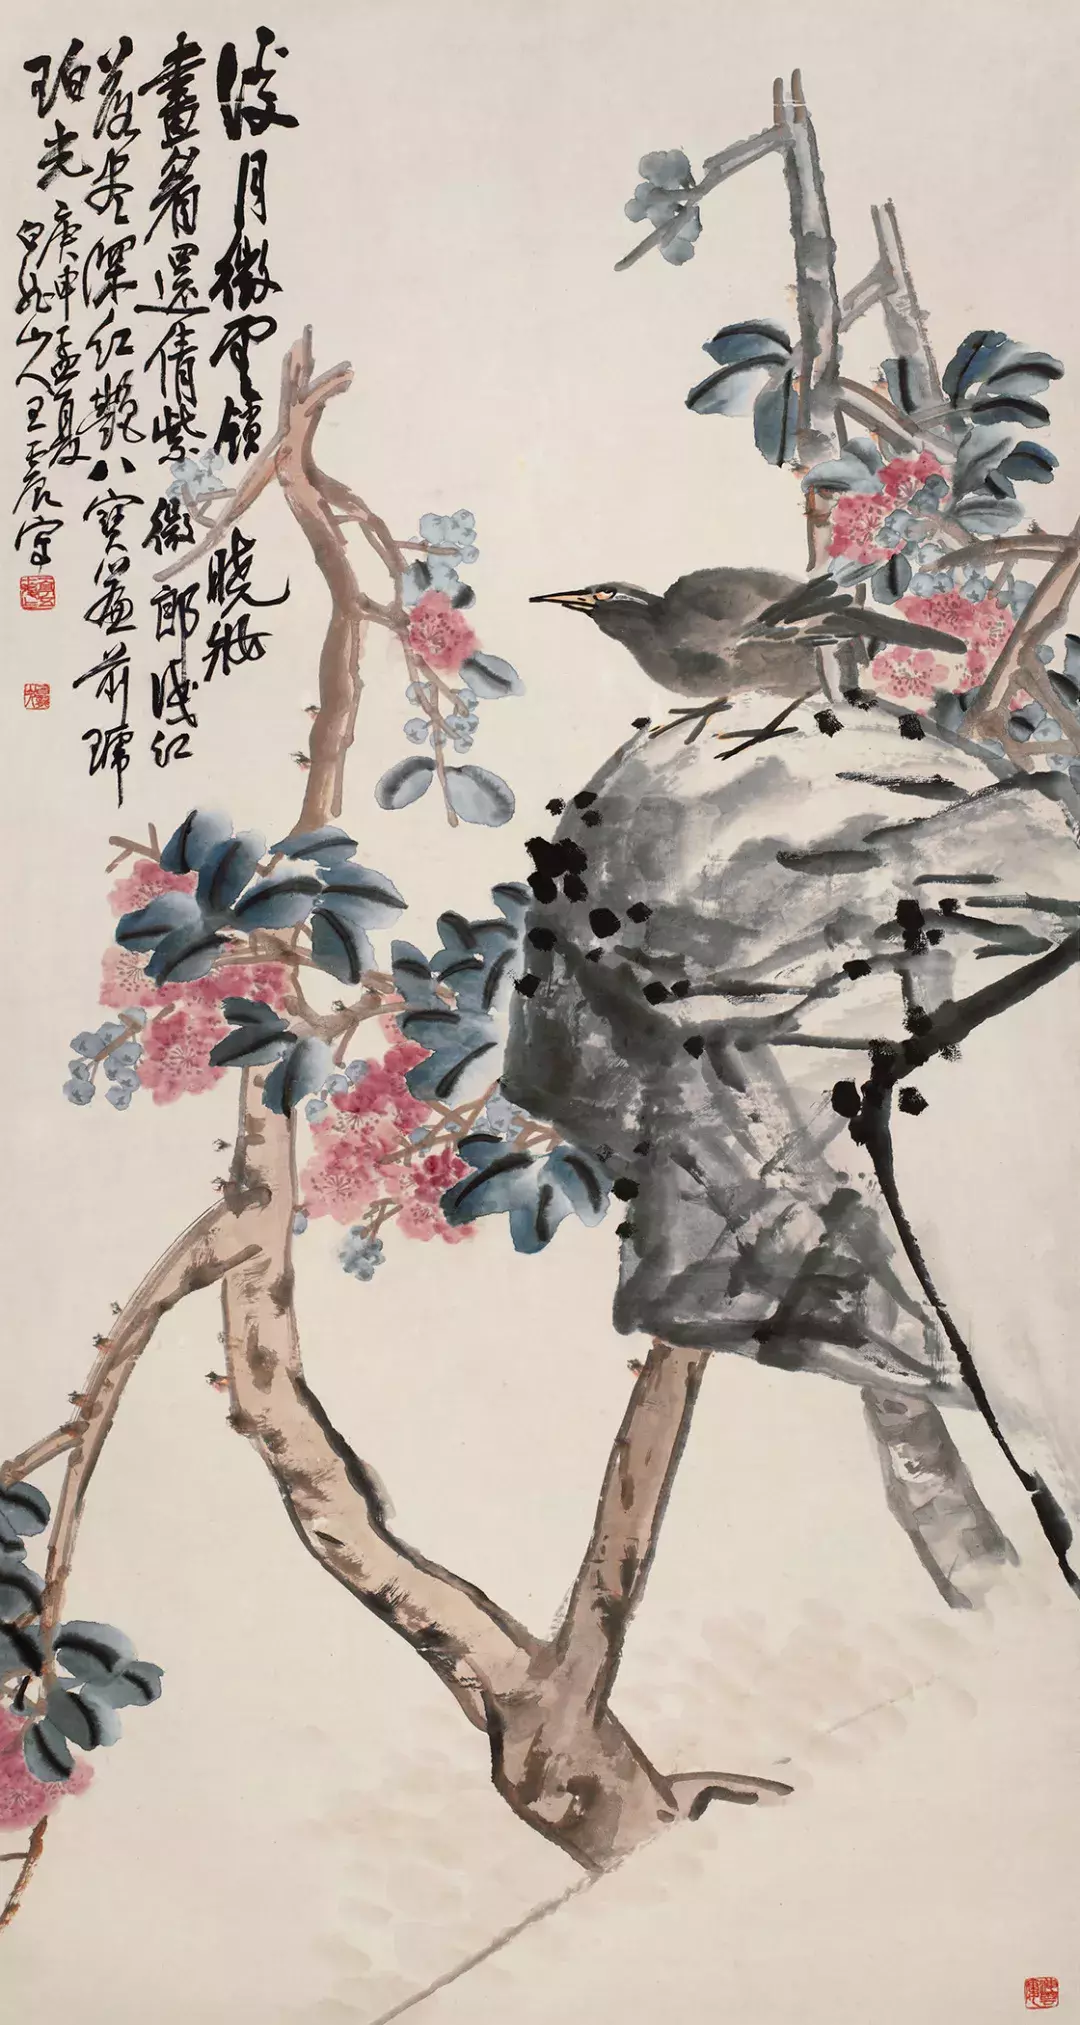 淡月微雲鎖曉妝
畫眉還倩紫微郎淺紅
落盡深紅艷八寶簾前琥
珀光庚申孟夏
白龍山人王震寫